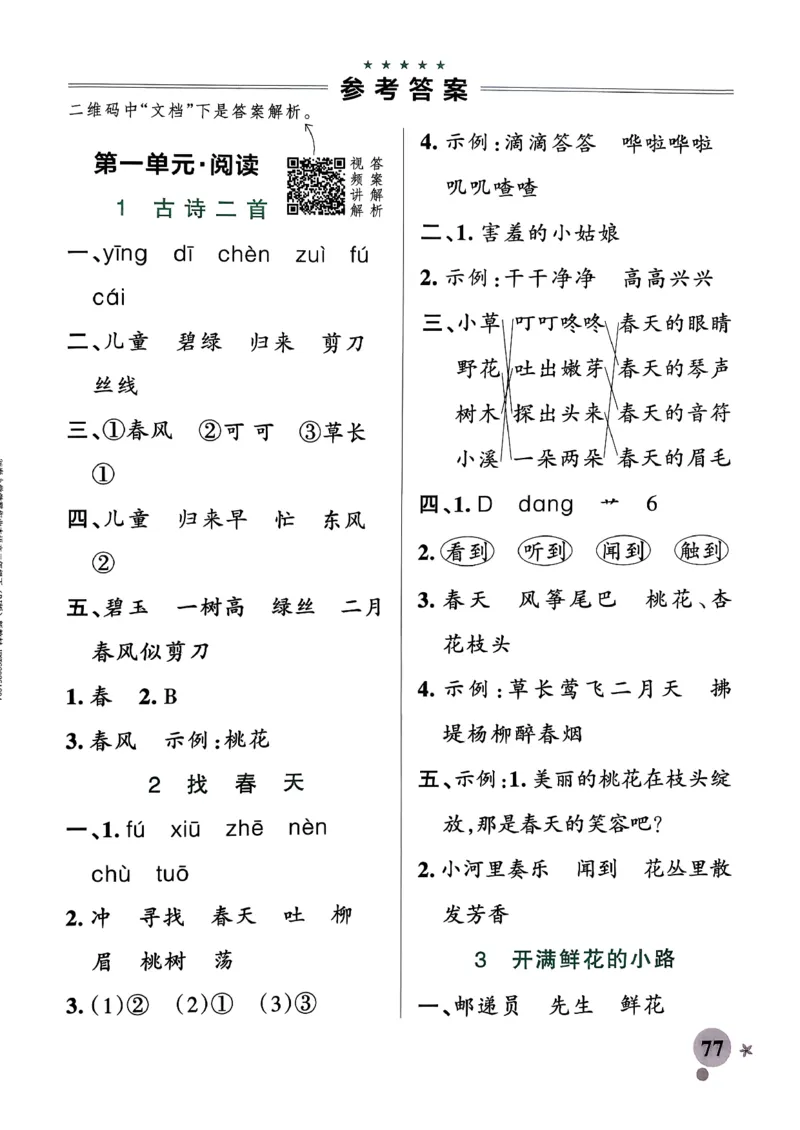 ★ ★ ★ ★ ★
参考答案
二维码中“文档”下是答案解析。
第一单元·阅读
视频讲解
答案解析
1 古诗二首
一、yīng dī chèn zuì fú
cái
二、儿童 碧绿 归来 剪刀
丝线
三、①春风 ②可可 ③草长
①
四、儿童 归来早 忙 东风
②
五、碧玉 一树高 绿丝 二月
春风似剪刀
1.春 2.B
3.春风 示例:桃花
2 找春天
一、1.fú xiū zhē nèn
chù tuō
2.冲 寻找 春天 吐 柳
眉 桃树 荡
3.(1)② (2)① (3)③
4.示例:滴滴答答 哗啦哗啦
叽叽喳喳
二、1.害羞的小姑娘
2.示例:干干净净 高高兴兴
三、小草 叮叮咚咚 春天的眼睛
野花 吐出嫩芽 春天的琴声
树木 探出头来 春天的音符
小溪 一朵两朵 春天的眉毛
四、1.D dang 艹 6
2.看到 听到 闻到 触到
3.春天 风筝尾巴 桃花、杏
花枝头
4.示例:草长莺飞二月天 拂
堤杨柳醉春烟
五、示例:1.美丽的桃花在枝头绽
放,那是春天的笑容吧?
2.小河里奏乐 闻到 花丛里散
发芳香
3 开满鲜花的小路
一、邮递员 先生 鲜花
77